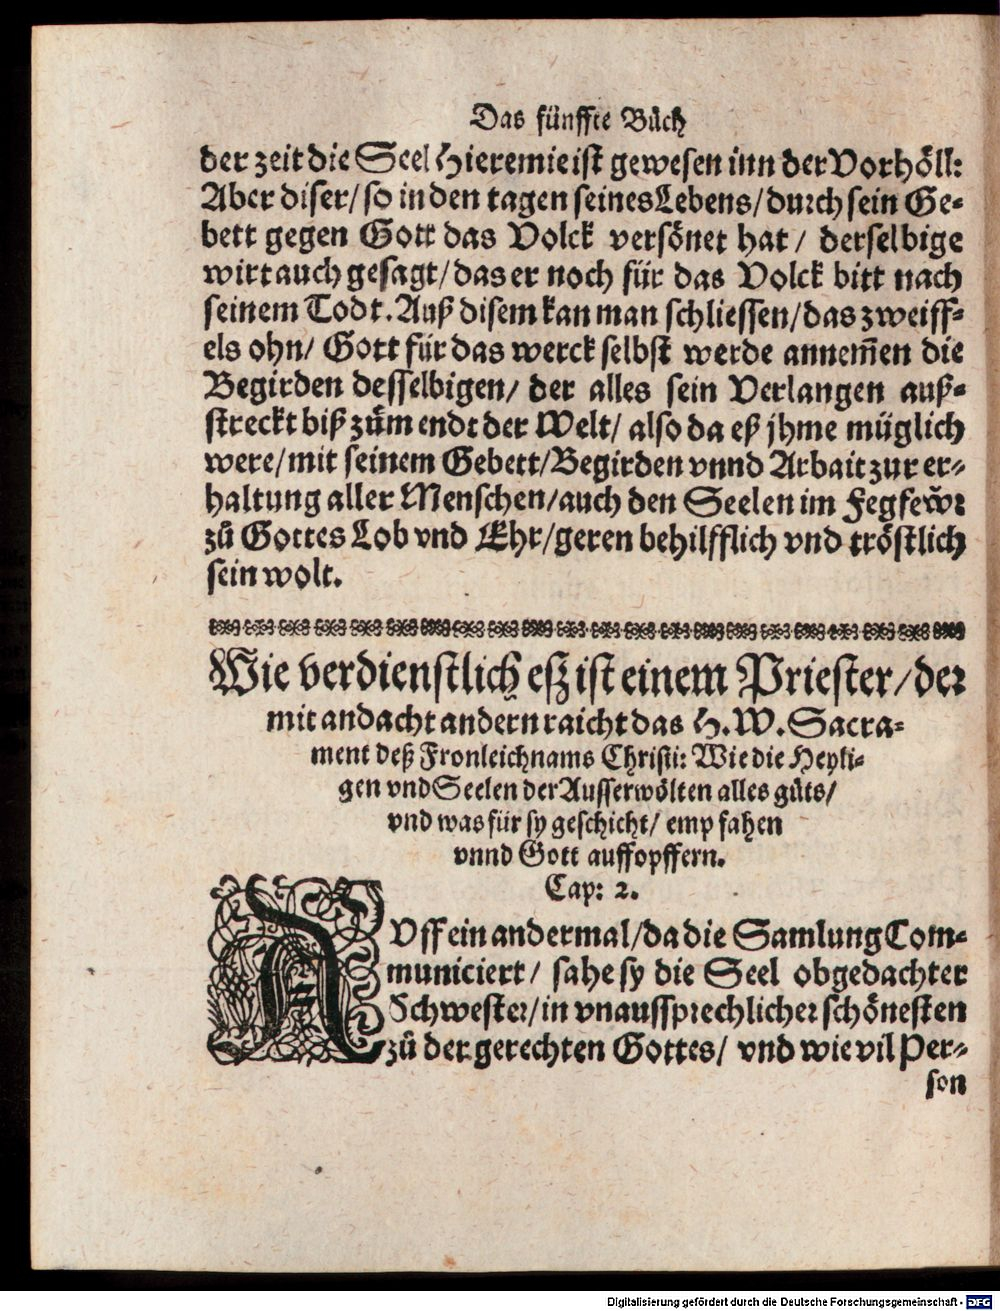 Das fünffte Bůch
der zeit die Seel Hieremie ist gewesen inn der Vorhöll:
Aber diser/ so in den tagen seines Lebens/ durch sein Ge-
bett gegen Gott das Volck versönet hat/ derselbige
wirt auch gesagt/ das er noch für das Volck bitt nach
seinem Todt. Auß disem kan man schliessen/ das zweiff-
els ohn/ Gott für das werck selbst werde annem̃en die
Begirden desselbigen/ der alles sein Verlangen auß-
streckt biß zům endt der Welt/ also da eß jhme müglich
were/ mit seinem Gebett/ Begirden vnnd Arbait zur er-
haltung aller Menschen/ auch den Seelen im Fegfew̃r
zů Gottes Lob vnd Ehr/ geren behilfflich vnd tröstlich
sein wolt.
Wie verdienstlich esz ist einem Priester/ der
mit andacht andern raicht das H. W. Sacra-
ment deß Fronleichnams Christi: Wie die Heyli-
gen vnd Seelen der Ausserwölten alles gůts/
vnd was für sy geschicht/ empfahen
vnnd Gott auffopffern.
Cap: 2.
AVff ein andermal/ da die Samlung Com-
municiert/ sahe sy die Seel obgedachter
Schwester/ in vnaussprechlicher schönesten
zů der gerechten Gottes/ vnd wie vil Per-
son
Digitalisierung gefördert durch die Deutsche Forschungsgemeinschaft - DFG